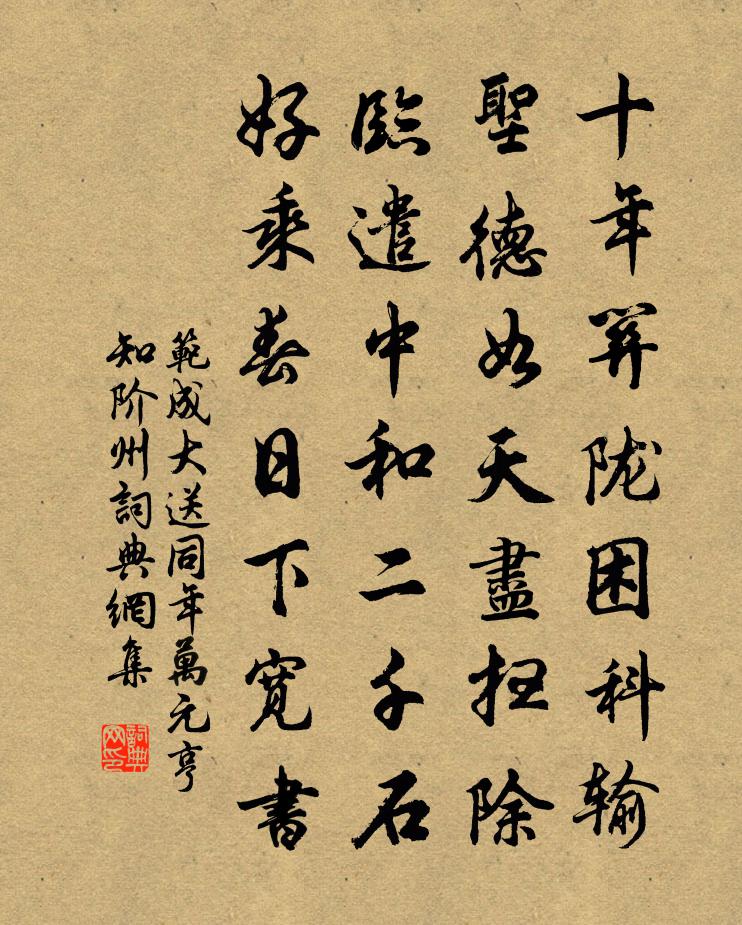 十年关陇困科输
聖德如天盡扫除
臨遣中和二千石
好乘春日下宽書
範成大送同年萬元亨
知阶州詞典網集
詞典
网印